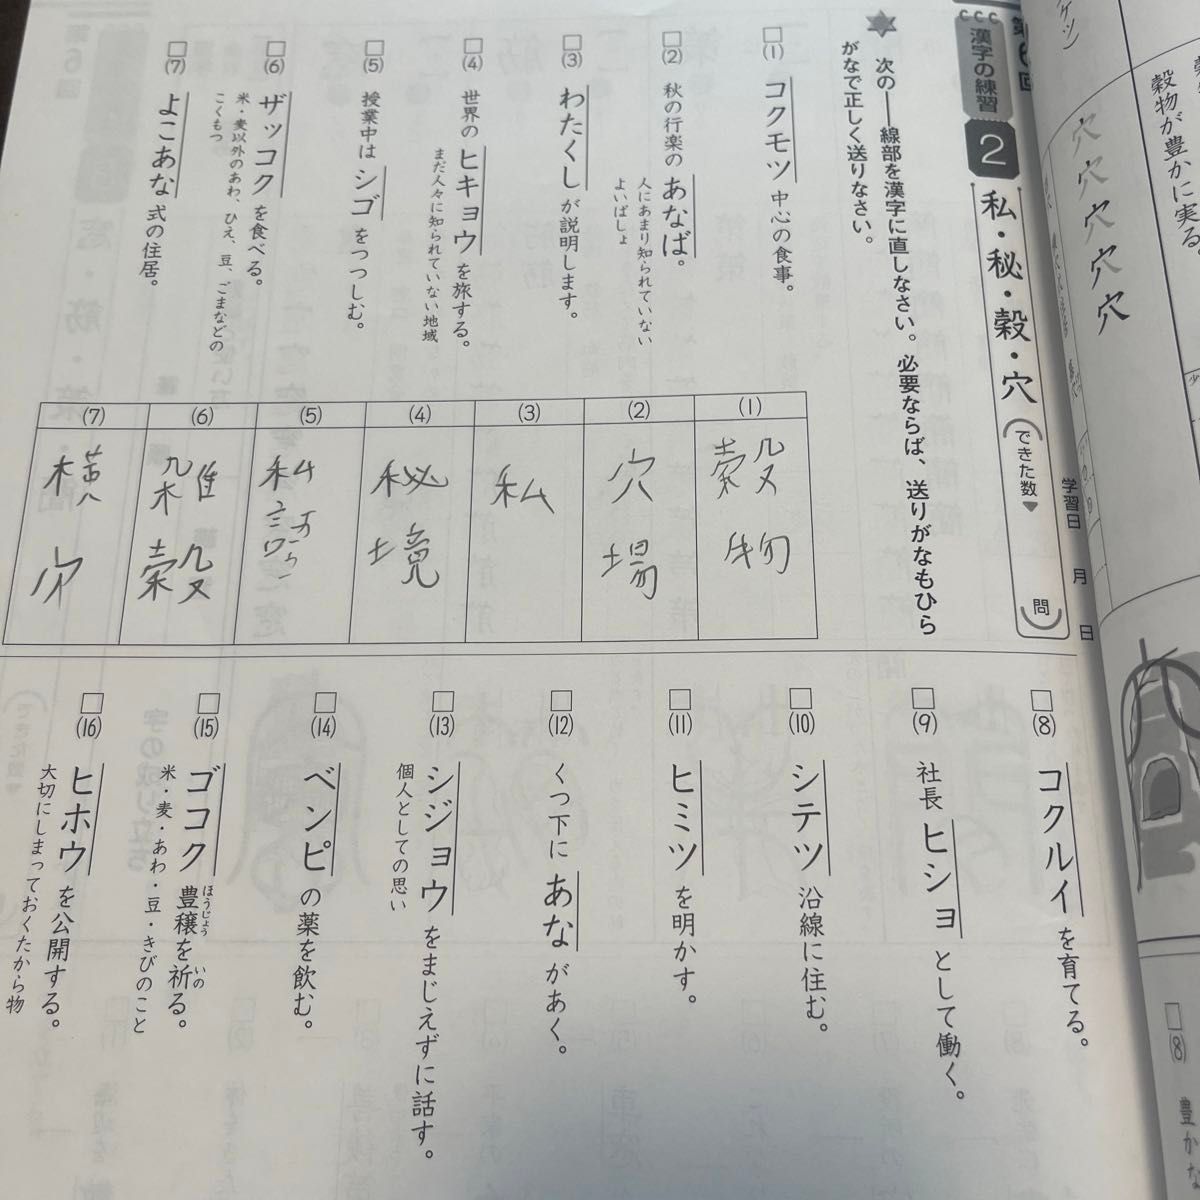 第6回
漢字の練習
2
私・秘・穀・穴
できた数▼
問
学習日
月
日
次の――線部を漢字に直しなさい。必要ならば、送りがなもひら
がなで正しく送りなさい。
(1)
コクモツ中心の食事。
(2)
秋の行楽のあなば。
人にあまり知られていない
よいばしょ
(3)
わたくしが説明します。
(4)
世界のヒキョウを旅する。
まだ人々に知られていない地域
(5)
授業中はシゴをつつしむ。
(6)
ザッコクを食べる。
米・麦以外のあわ、ひえ、豆、ごまなどの
こくもつ
(7)
よこあな式の住居。
(1)
穀物
(2)
穴場
(3)
私
(4)
秘境
(5)
私語
(6)
雑穀
(7)
横穴
(8)
コクルイを育てる。
(9)
社長ヒショとして働く。
(10)
シテツ沿線に住む。
(11)
ヒミツを明かす。
(12)
くつ下にあながあく。
(13)
シジョウをまじえずに話す。
個人としての思い
(14)
ベンピの薬を飲む。
(15)
ゴコク豊穣を祈る。
ほうじょう
いの
米・麦・あわ・豆・きびのこと
(16)
ヒホウを公開する。
大切にしまっておくたから物
穀物が豊かに実る。
穴穴穴穴穴
(8)
豊かな